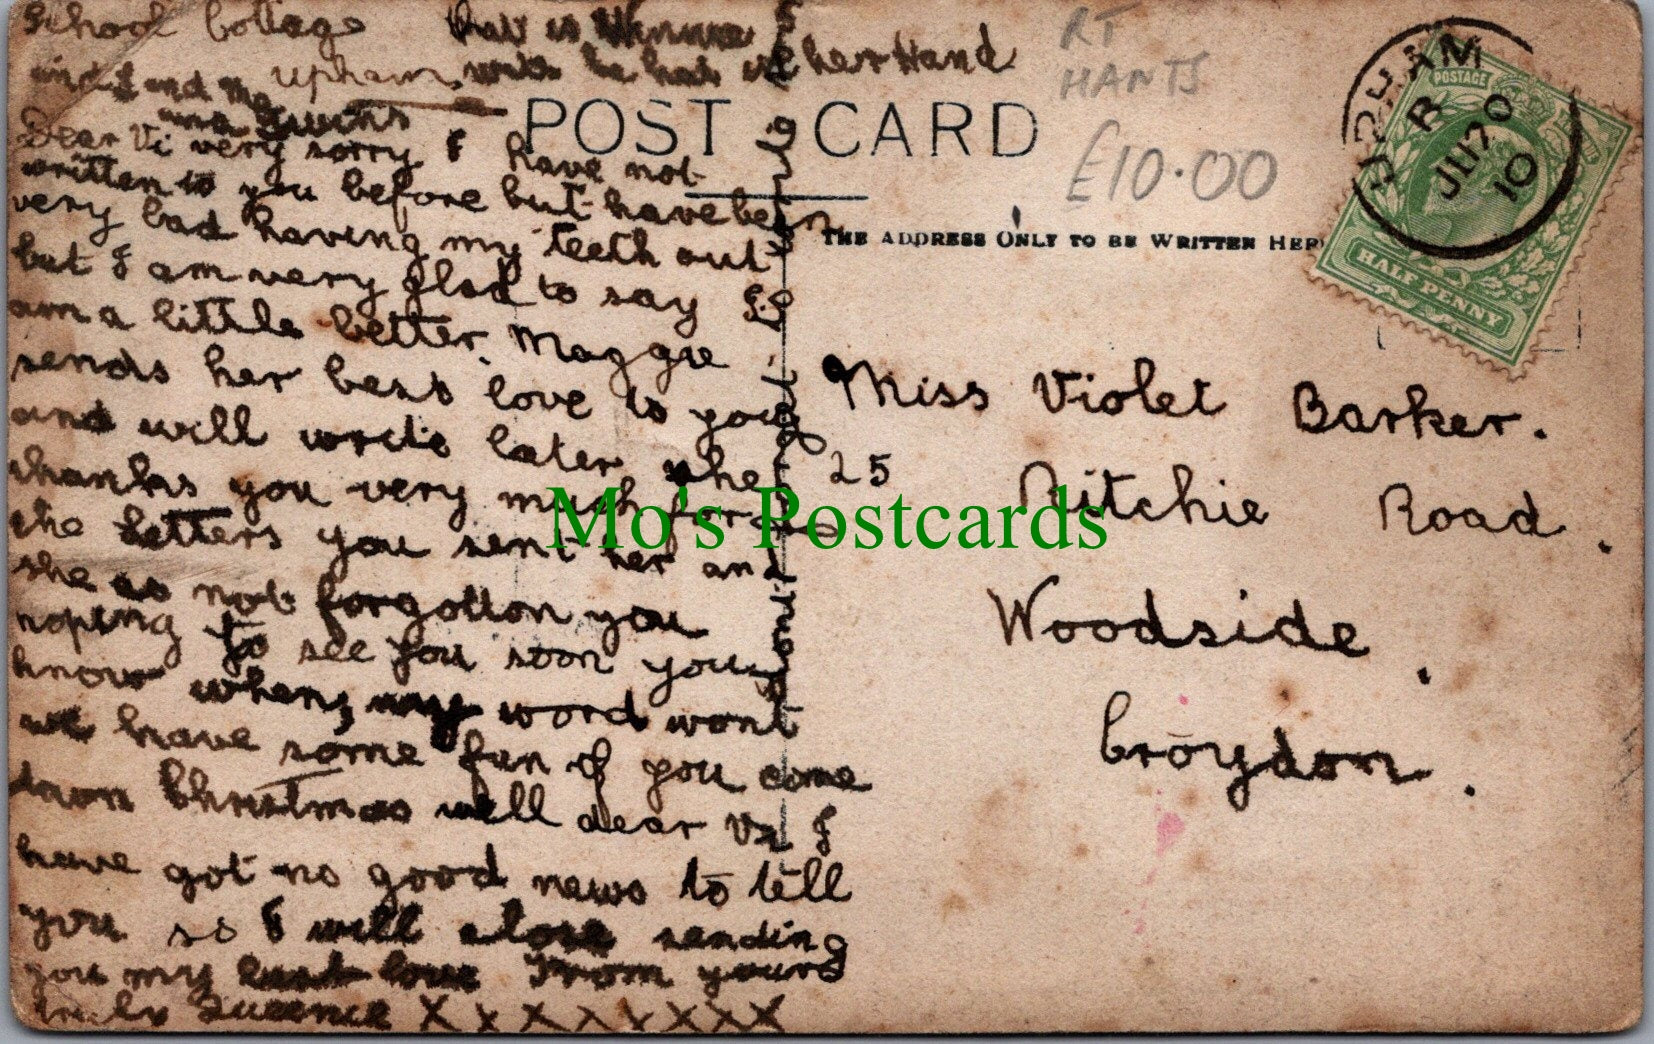 School Cottage
Upham
that is Winnie
with he hat in her Hand
and I and Ma
and
POST CARD
RT
HANTS
£10.00
UPHAM
B
JU 20
10
POSTAGE
HALF PENNY
THE ADDRESS ONLY TO BE WRITTEN HER
Dear Vi very sorry I have not
written to you before but have been
very bad having my teeth out
but I am very glad to say I
am a little better. Maggie
sends her best love to you
and will write later she
thanks you very much for
the letters you sent her and
she as not forgotton you
hoping to see you soon you
know when, my word wont
we have some fun if you come
down Christmas well dear Vi I
have got no good news to tell
you so I will close sending
you my best love From yours
truly X X X X X X X X
Miss Violet Barker.
25 Ritchie Road.
Woodside.
Croydon.
Mo's Postcards